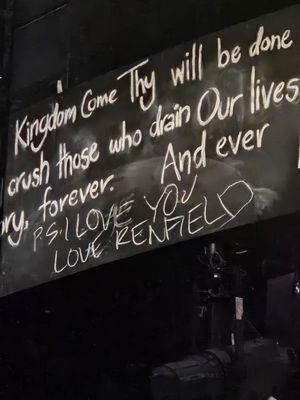 Kingdom Come Thy will be done
crush those who drain Our lives
ry, forever. And ever
P.S. I LOVE YOU
LOVE RENFIELD